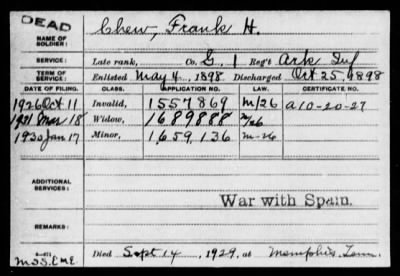 DEAD
NAME OF SOLDIER: Chew, Frank H.
SERVICE: Late rank, Co. G, 1 Reg't Ark Inf
TERM OF SERVICE: Enlisted May 4, 1898 Discharged Oct 25, 1898
DATE OF FILING. CLASS. APPLICATION NO. LAW. CERTIFICATE NO.
1926 Oct 11 Invalid, 1557869 M/26 a10-20-27
1931 Mar 18 Widow, 1689888 M/26
1930 Jan 17 Minor, 1659,136 M-26
ADDITIONAL SERVICES:
War with Spain.
REMARKS:
Died Sept 14, 1929, at Memphis, Tenn.